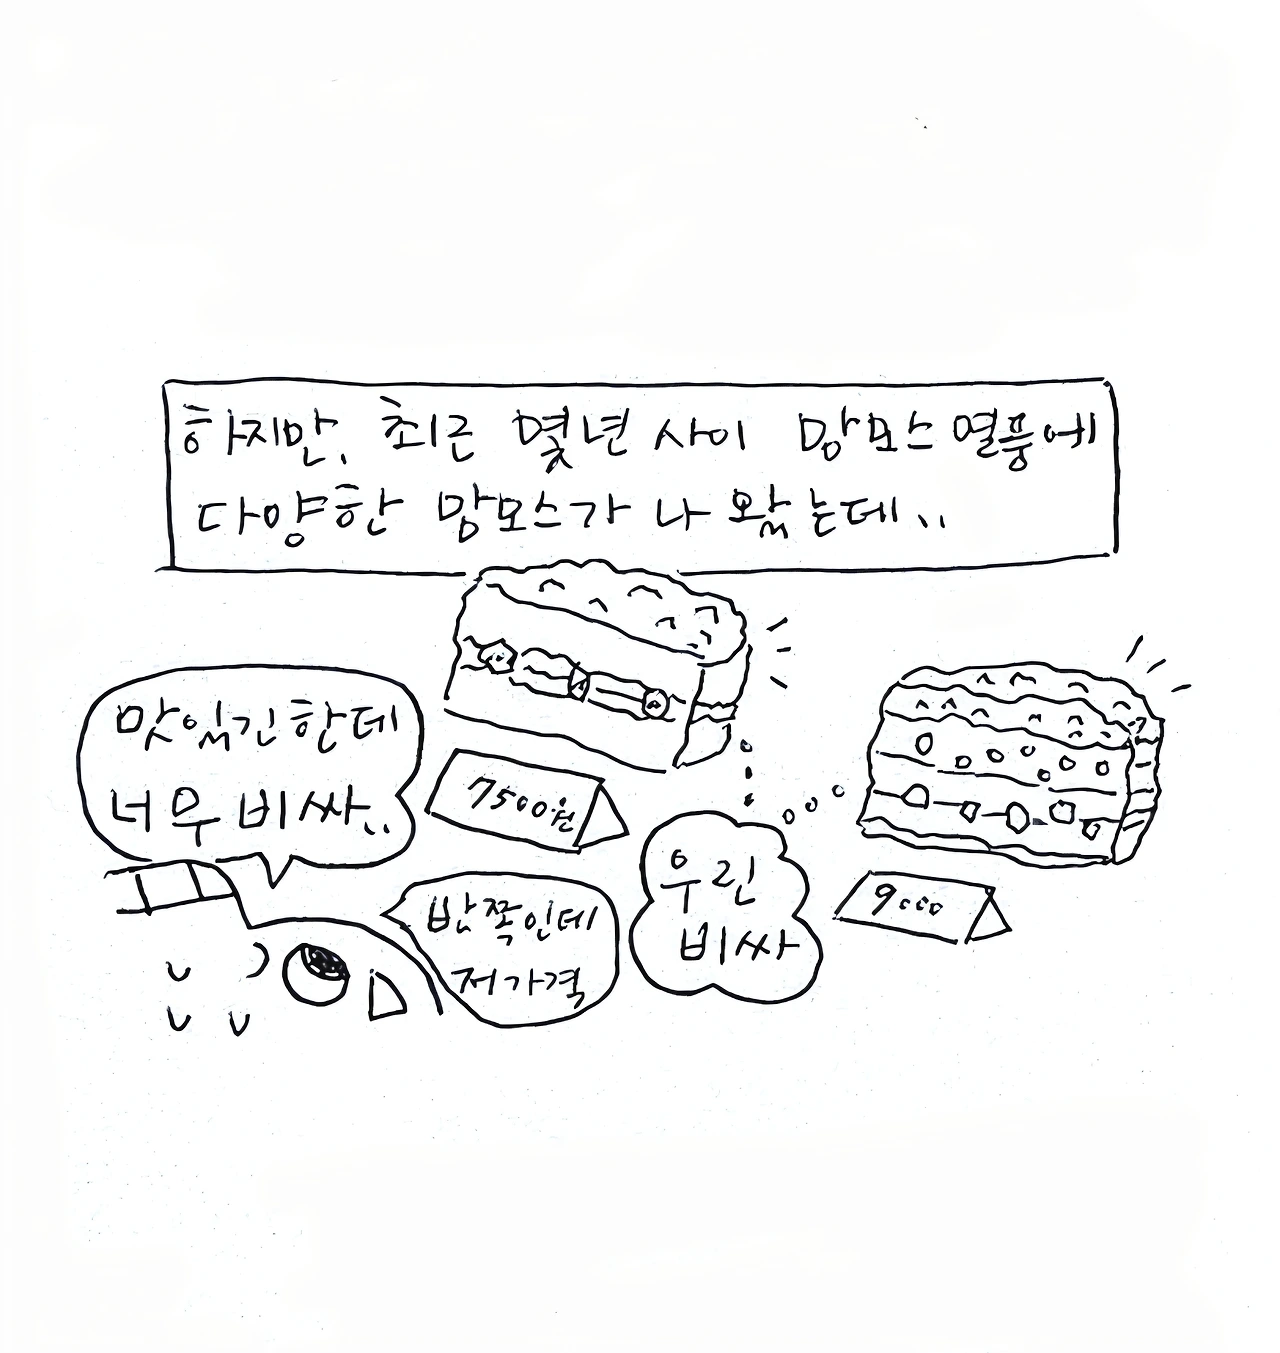 하지만, 최근 몇년 사이 맘모스 열풍에
다양한 맘모스가 나 왔는데..
맛있긴한데
너무 비싸..
7500원
반쪽인데
저가격
우린
비싸
9000